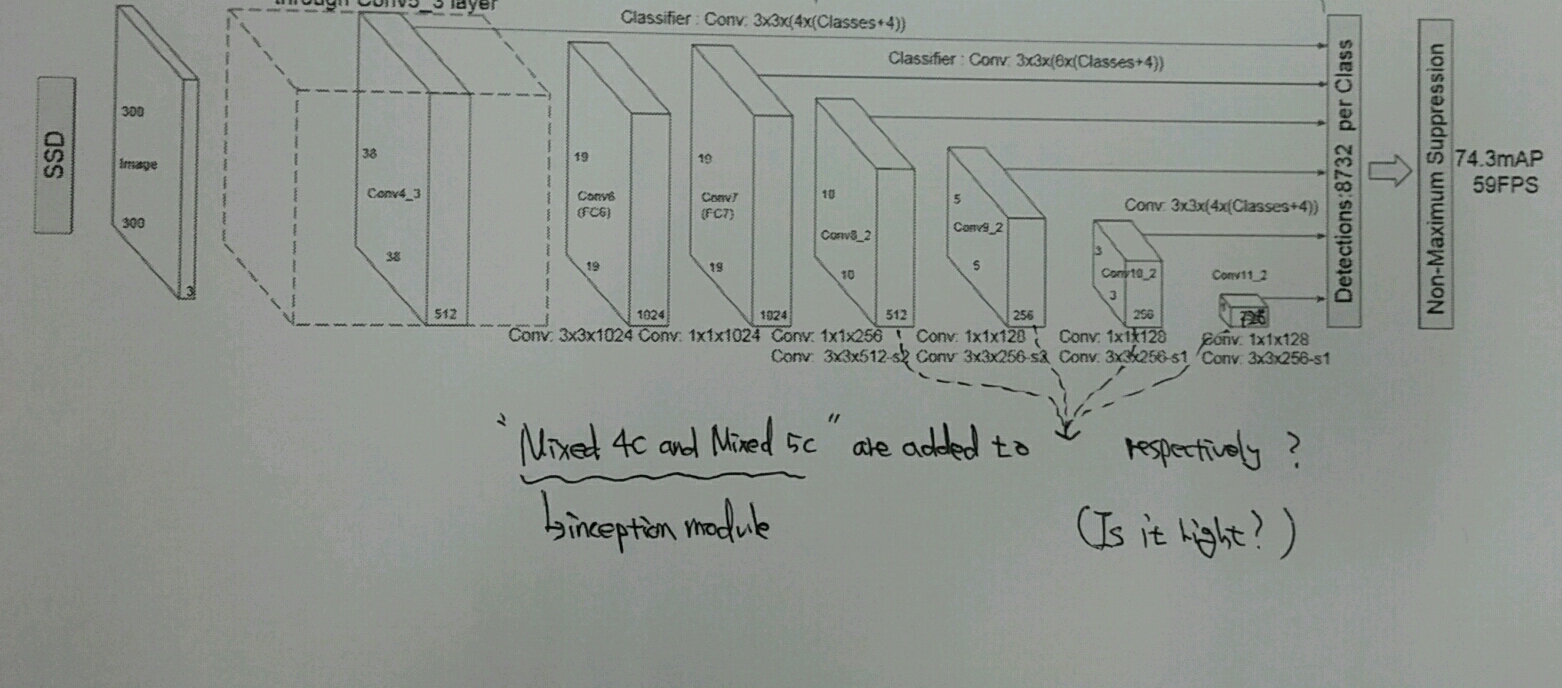 through Conv5_3 layer
Classifier : Conv: 3x3x(4x(Classes+4))
Classifier : Conv: 3x3x(6x(Classes+4))
SSD
300
Image
300
3
38
Conv4_3
38
512
19
Conv6
(FC6)
19
1024
19
Conv7
(FC7)
19
1024
10
Conv8_2
10
512
5
Conv9_2
5
256
Conv: 3x3x(4x(Classes+4))
3
Conv10_2
3
256
Conv11_2
Detections:8732 per Class
Non-Maximum Suppression
74.3mAP
59FPS
Conv: 3x3x1024 Conv: 1x1x1024 Conv: 1x1x256 Conv: 1x1x128 Conv: 1x1x128 Conv: 1x1x128
Conv: 3x3x512-s2 Conv: 3x3x256-s2 Conv: 3x3x256-s1 Conv: 3x3x256-s1
"Mixed 4c and Mixed 5c" are added to respectively ?
inception module
(Is it right?)